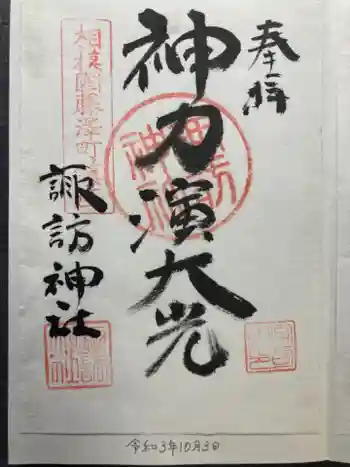 奉拝
神力演大光
諏訪神社
相模國藤澤町
令和3年10月3日